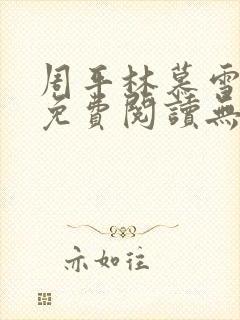 周平林慕雪
免費閱讀無
亦如往